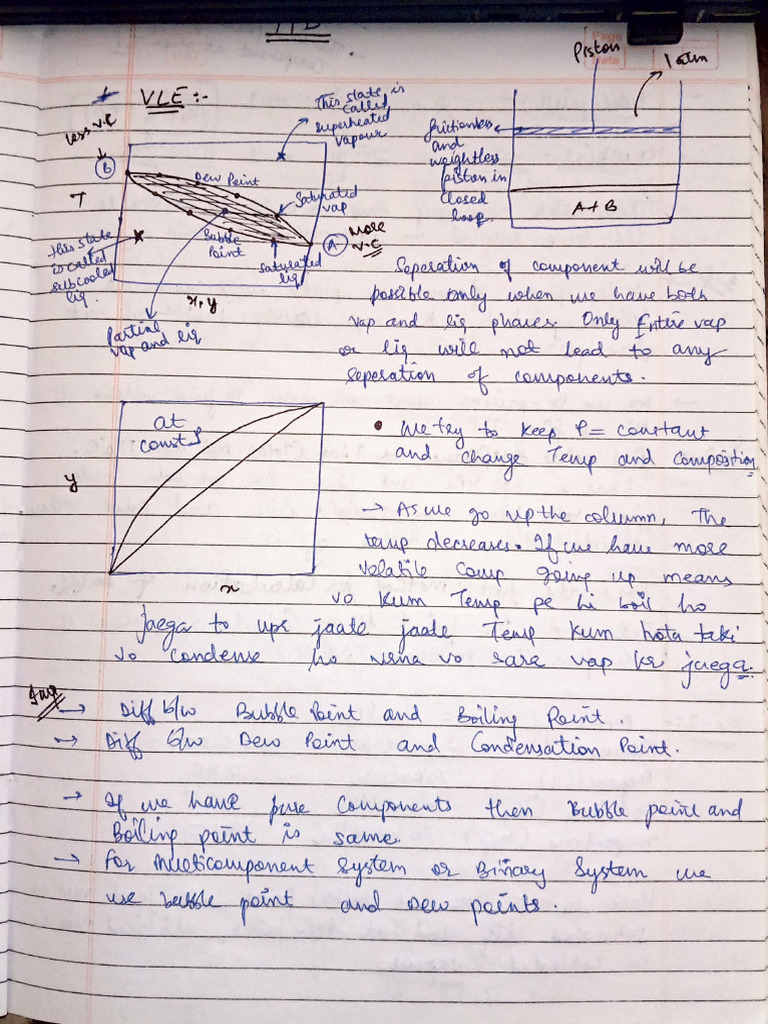 VLE :-
less v.c
B
T
This state is
called
superheated
vapour
Dew Point
Saturated
vap
Bubble
Point
A
More
v.c
saturated
liq
this state
is called
subcooled
liq.
x, y
Partial
vap and liq
Piston
1 atm
frictionless
and
weightless
piston in
closed
loop.
A+B
Seperation of component will be
possible only when we have both
vap and liq phases. Only Entire vap
or liq will not lead to any
seperation of components.
at
const P
y
x
• We try to keep P = constant
and change Temp and Composition
→ As we go up the column, The
temp decreases. If we have more
volatile comp going up means
vo kum Temp pe hi boil ho
jaega to upr jaate jaate Temp kum hota taki
vo condense ho vrna vo sara vap kr jaega.
Imp
→ Diff b/w Bubble Point and Boiling Point.
→ Diff b/w Dew Point and Condensation Point.
→ If we have pure components then Bubble point and
Boiling point is same.
→ For Multicomponent System or Binary System we
use bubble point and Dew points.